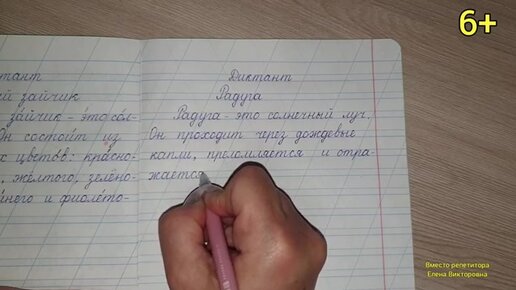 6+
ктант
ий зайчик
зайчик - это сол-
Он состоит из
х цветов: красно-
, жёлтого, зелёно-
него и фиолето-
Диктант
Радуга
Радуга - это солнечный луч.
Он проходит через дождевые
капли, преломляется и отра-
жается
Вместо репетитора
Елена Викторовна